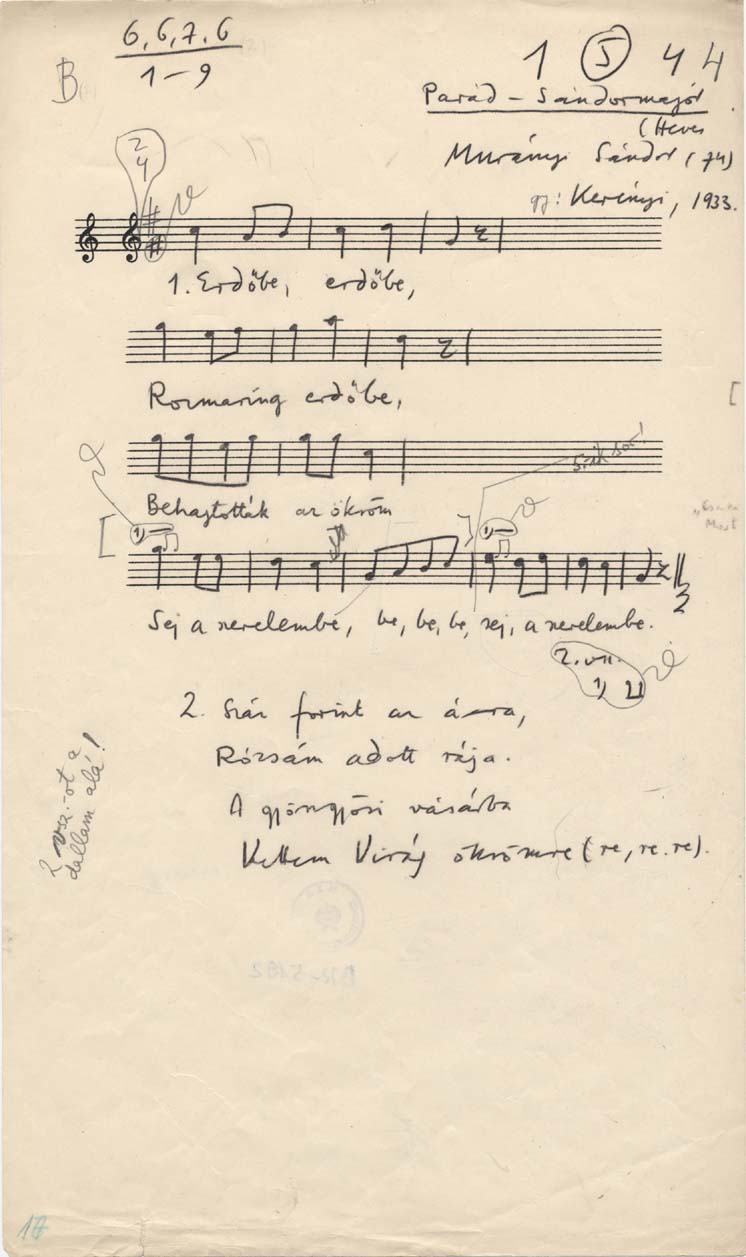 6,6,7,6
1-9
B
1 5 4 4
Parád - Sándormajor
(Heves
Murányi Sándor (74)
gy: Kerényi, 1933.
2
4
1. Erdőbe, erdőbe,
Rozmaring erdőbe,
Behajtották az ökröm
Sej a szerelembe, be, be, be, sej, a szerelembe.
2. vsz.
1) 
2. Száz forint az ára,
Rózsám adott rája.
A gyöngyösi vásárba
Vettem Virág ökrömre (re, re. re).
2 vsz.-ot a
dallam alá!